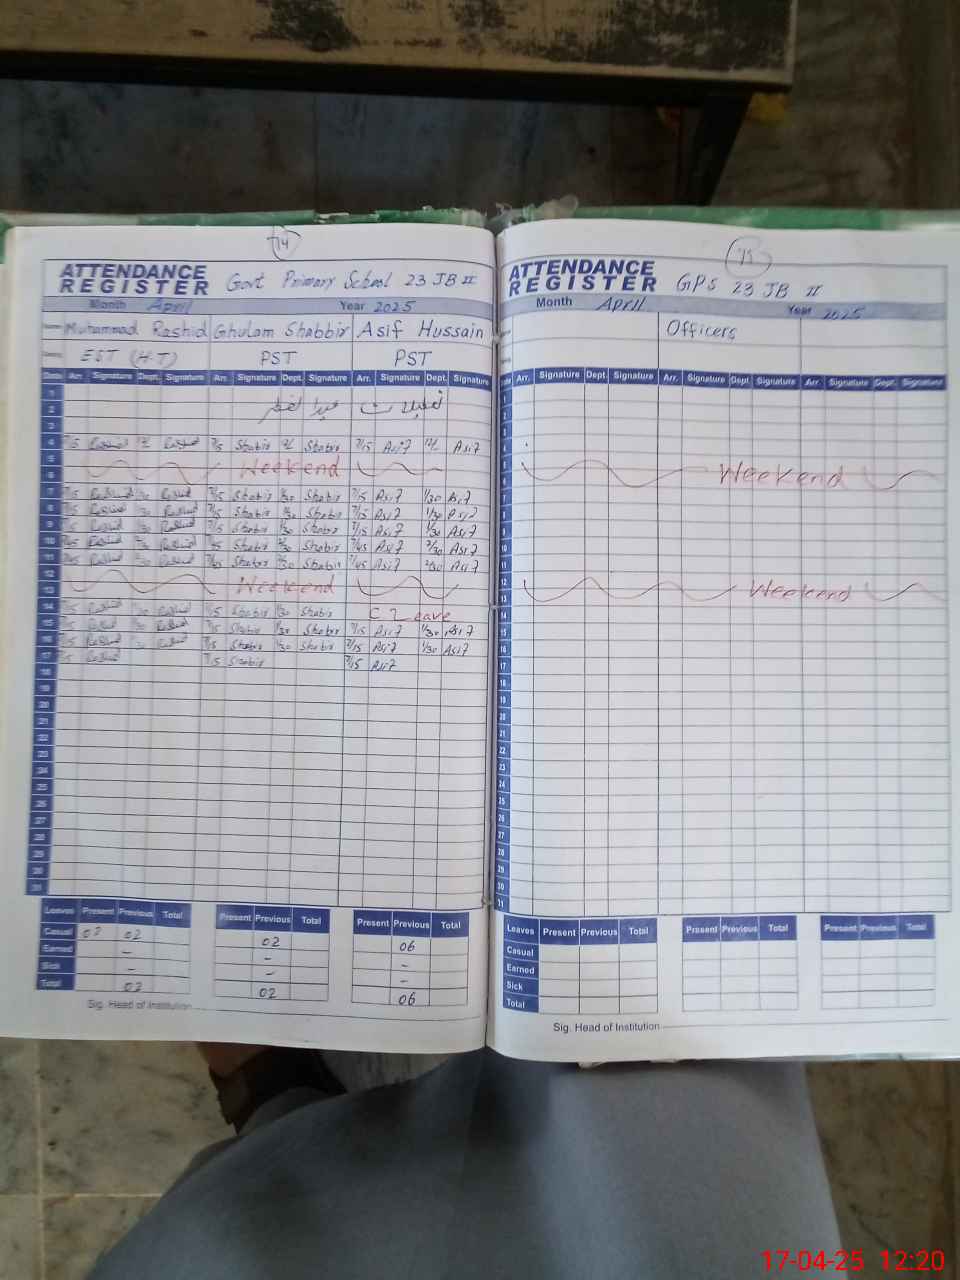 14
ATTENDANCE REGISTER Govt Primary School 23 JB II
Month April Year 2025
Name Muhammad Rashid Ghulam Shabbir Asif Hussain
EST (H.T) PST PST
Date Arr. Signature Dept. Signature Arr. Signature Dept. Signature Arr. Signature Dept. Signature
1
2 تعطیلات عیدالفطر
3
4 7/15 Rashid 12/ Rashid 7/15 Shabir 12/ Shabir 7/15 Asif 12/ Asif
5 Weekend
6
7 7/15 Rashid 1/30 Rashid 7/15 Shabir 1/30 Shabir 7/15 Asif 1/30 Asif
8 7/15 Rashid 1/30 Rashid 7/15 Shabir 1/30 Shabir 7/15 Asif 1/30 Asif
9 7/15 Rashid 1/30 Rashid 7/15 Shabir 1/30 Shabir 7/15 Asif 1/30 Asif
10 7/45 Rashid Rashid 7/45 Shabir Shabir 7/45 Asif Asif
11 7/45 Rashid Rashid 7/45 Shabir Shabir 7/45 Asif Asif
12 Weekend
13
14 7/15 Rashid 1/30 Rashid 7/15 Shabir 1/30 Shabir C Leave
15 7/15 Rashid 1/30 Rashid 7/15 Shabir 1/30 Shabir 7/15 Asif 1/30 Asif
16 7/15 Rashid Rashid 7/15 Shabir 1/30 Shabir 7/15 Asif 1/30 Asif
17 7/15 Rashid 7/15 Shabir 7/15 Asif
18
19
20
21
22
23
24
25
26
27
28
29
30
31
Leaves Present Previous Total Present Previous Total Present Previous Total
Casual 02 02 06
Earned - - -
Sick - - -
Total 02 02 06
Sig. Head of Institution
ATTENDANCE REGISTER GPS 23 JB II
Month April Year 2025
Officers
Date Arr. Signature Dept. Signature Arr. Signature Dept. Signature Arr. Signature Dept. Signature
1
2
3
4
5 Weekend
6
7
8
9
10
11
12 Weekend
13
14
15
16
17
18
19
20
21
22
23
24
25
26
27
28
29
30
31
Leaves Present Previous Total Present Previous Total Present Previous Total
Casual
Earned
Sick
Total
Sig. Head of Institution
17-04-25 12:20